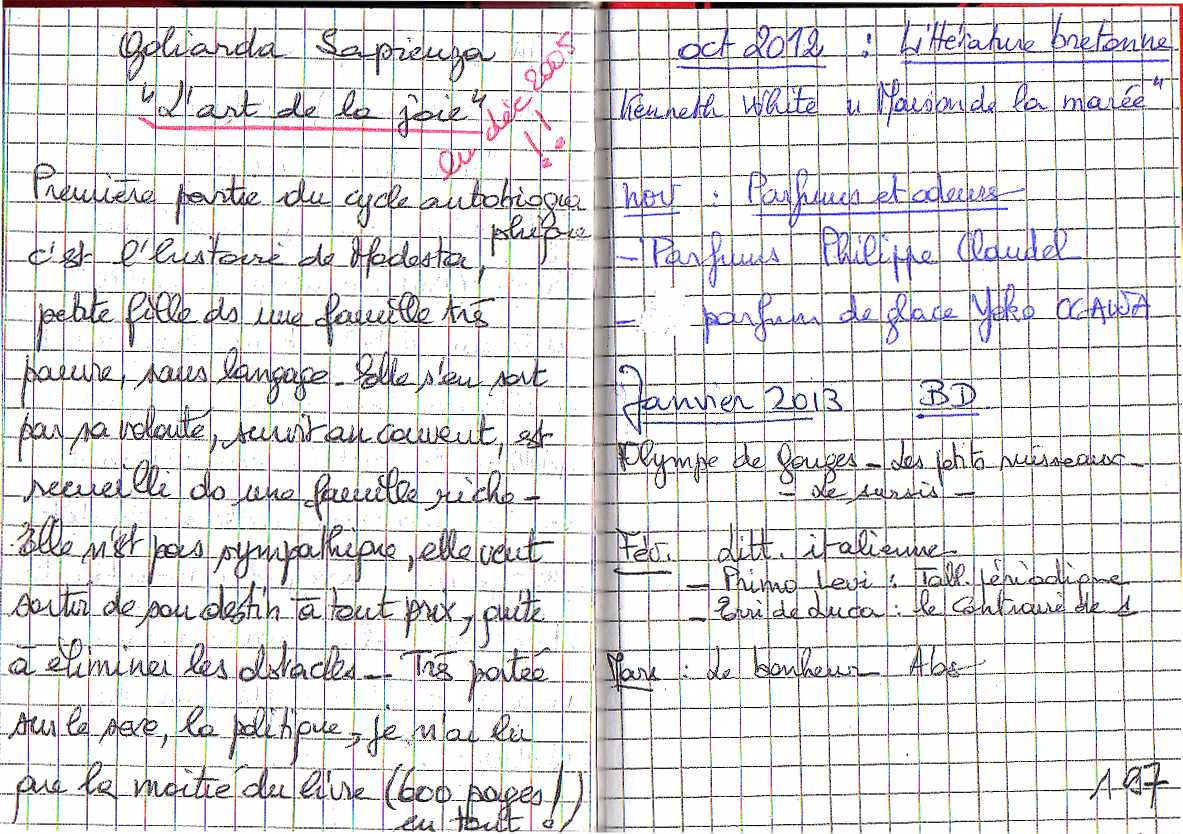 Goliarda Sapienza
"L'art de la joie"
lu déc 2005 !!
Première partie du cycle autobiogra
phique
c'est l'histoire de Modesta,
petite fille ds une famille très
pauvre, sans langage. Elle s'en sort
par sa volonté, survit au couvent, est
recueilli ds une famille riche -
Elle n'est pas sympathique, elle veut
sortir de son destin à tout prix, quite
à éliminer les obstacles - Très portée
sur le sexe, la politique, je n'ai lu
que la moitié du livre (600 pages!)
en tout !
oct 2012 : Littérature bretonne
Kenneth White " Maison de la marée"
nov : Parfums et odeurs
- Parfums Philippe Claudel
- parfum de glace Yoko OGAWA
Janvier 2013 BD
Olympe de Gouges - Les petits ruisseaux -
- Le sursis -
Fév. Litt. italienne
- Primo Levi : Tall. périodique
- Erri de Luca : le contraire de 1
Mars : Le bonheur Abs
197